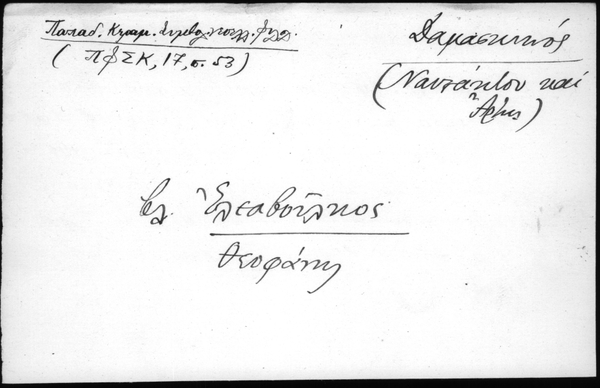 Παπαδ. Κεραμ. Συμβολ.
(ΠΦΣΚ, 17, σ. 53)
Δαμασκηνός
(Ναυπάκτου καὶ
Ἄρτης)
βλ. Ἐλεαβοῦλκος
Θεοφάνης